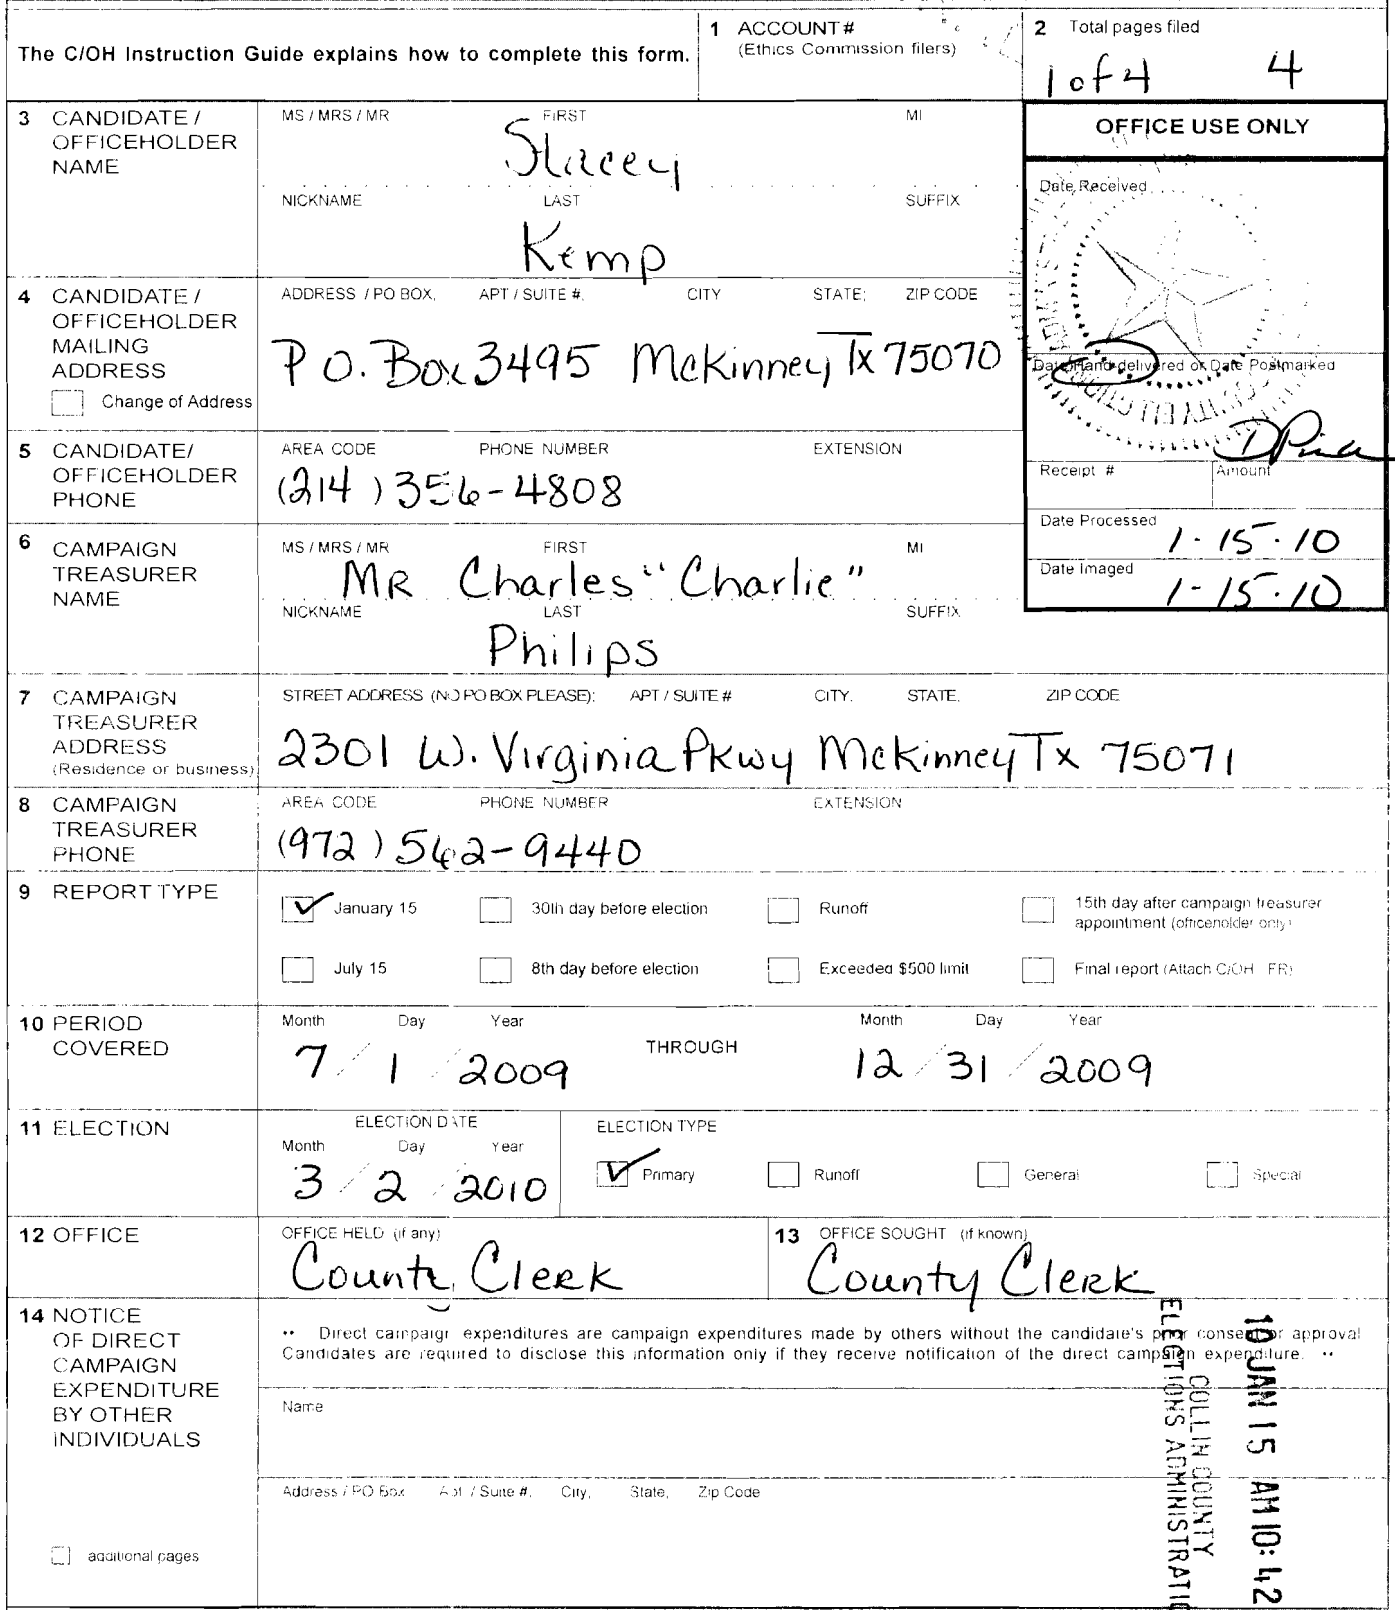 The C/OH Instruction Guide explains how to complete this form.
1 ACCOUNT #
(Ethics Commission filers)
2 Total pages filed
1 of 4 4
3 CANDIDATE /
OFFICEHOLDER
NAME
MS / MRS / MR FIRST MI
Stacey
NICKNAME LAST SUFFIX
Kemp
OFFICE USE ONLY
Date Received
Date Hand-delivered or Date Postmarked
Receipt # Amount
Date Processed
1-15-10
Date Imaged
1-15-10
4 CANDIDATE /
OFFICEHOLDER
MAILING
ADDRESS
Change of Address
ADDRESS / PO BOX, APT / SUITE #, CITY STATE; ZIP CODE
P O. Box 3495 McKinney Tx 75070
5 CANDIDATE/
OFFICEHOLDER
PHONE
AREA CODE PHONE NUMBER EXTENSION
(214) 356-4808
6 CAMPAIGN
TREASURER
NAME
MS / MRS / MR FIRST MI
MR Charles "Charlie"
NICKNAME LAST SUFFIX
Philips
7 CAMPAIGN
TREASURER
ADDRESS
(Residence or business)
STREET ADDRESS (NO PO BOX PLEASE); APT / SUITE # CITY, STATE, ZIP CODE
2301 W. Virginia Pkwy McKinney Tx 75071
8 CAMPAIGN
TREASURER
PHONE
AREA CODE PHONE NUMBER EXTENSION
(972) 562-9440
9 REPORT TYPE
January 15 30th day before election Runoff 15th day after campaign treasurer
appointment (officeholder only)
July 15 8th day before election Exceeded $500 limit Final report (Attach C/OH FR)
10 PERIOD
COVERED
Month Day Year Month Day Year
7 / 1 / 2009 THROUGH 12 / 31 / 2009
11 ELECTION
ELECTION DATE
Month Day Year
3 / 2 / 2010
ELECTION TYPE
Primary Runoff General Special
12 OFFICE
OFFICE HELD (if any)
County Clerk
13 OFFICE SOUGHT (if known)
County Clerk
14 NOTICE
OF DIRECT
CAMPAIGN
EXPENDITURE
BY OTHER
INDIVIDUALS
additional pages
•• Direct campaign expenditures are campaign expenditures made by others without the candidate's prior consent or approval
Candidates are required to disclose this information only if they receive notification of the direct campaign expenditure. ••
Name
Address / PO Box Apt / Suite #, City, State, Zip Code
10 JAN 15 AM 10:42
COLLIN COUNTY
ELECTIONS ADMINISTRATIO